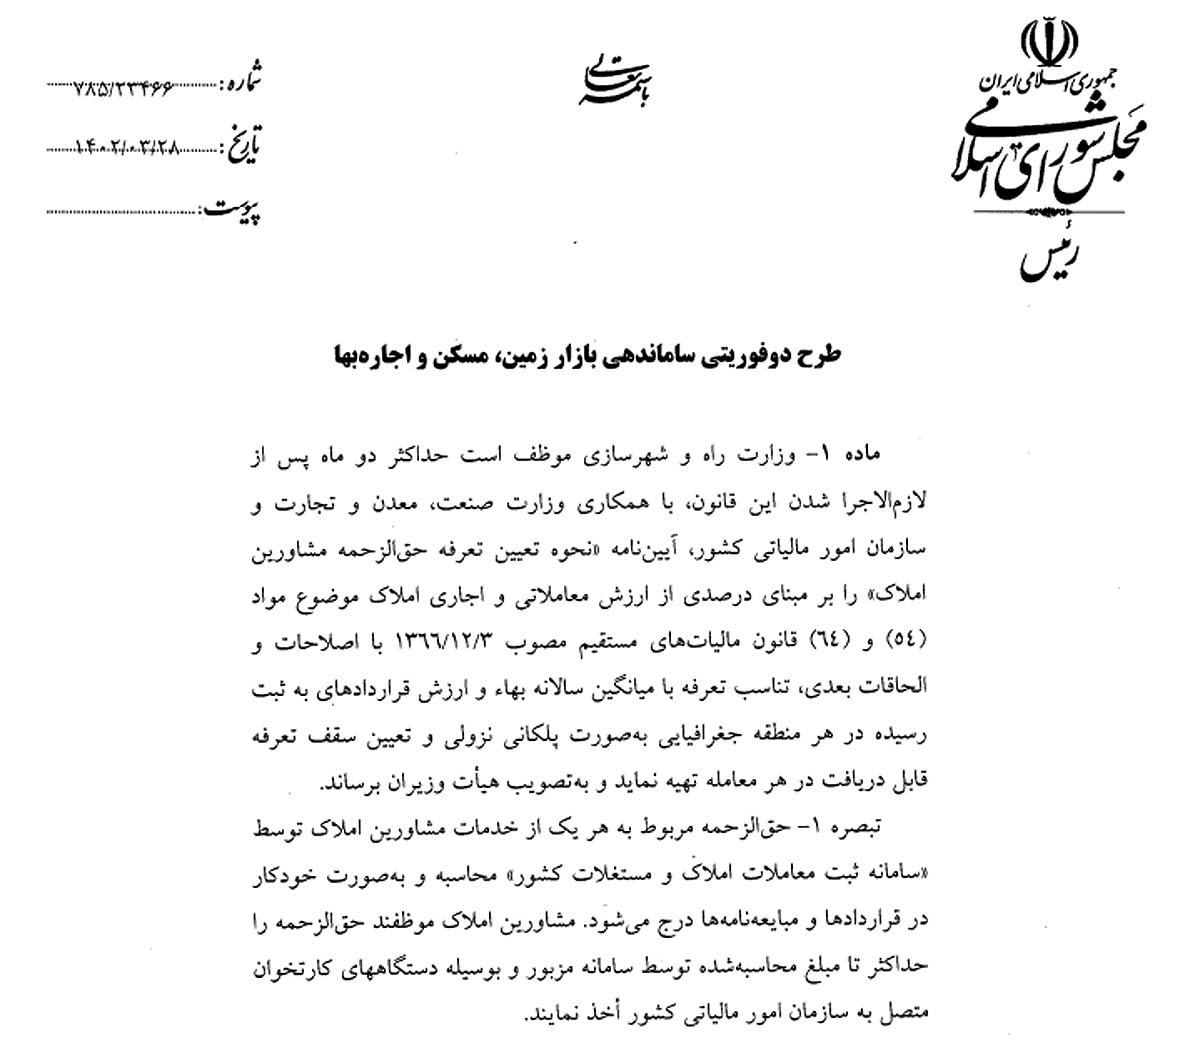 جمهوری اسلامی ایران
مجلس شورای اسلامی
رئیس
باسمه تعالی
شماره: ۷۸۵/۲۳۴۶۶
تاریخ: ۱۴۰۲/۰۳/۲۸
پیوست:
طرح دوفوریتی ساماندهی بازار زمین، مسکن و اجاره‌بها
ماده ۱- وزارت راه و شهرسازی موظف است حداکثر دو ماه پس از
لازم‌الاجرا شدن این قانون، با همکاری وزارت صنعت، معدن و تجارت و
سازمان امور مالیاتی کشور، آیین‌نامه «نحوه تعیین تعرفه حق‌الزحمه مشاورین
املاک» را بر مبنای درصدی از ارزش معاملاتی و اجاری املاک موضوع مواد
(۵۴) و (۶۴) قانون مالیات‌های مستقیم مصوب ۱۳۶۶/۱۲/۳ با اصلاحات و
الحاقات بعدی، تناسب تعرفه با میانگین سالانه بهاء و ارزش قراردادهای به ثبت
رسیده در هر منطقه جغرافیایی به‌صورت پلکانی نزولی و تعیین سقف تعرفه
قابل دریافت در هر معامله تهیه نماید و به‌تصویب هیأت وزیران برساند.
تبصره ۱- حق‌الزحمه مربوط به هر یک از خدمات مشاورین املاک توسط
«سامانه ثبت معاملات املاک و مستغلات کشور» محاسبه و به‌صورت خودکار
در قراردادها و مبایعه‌نامه‌ها درج می‌شود. مشاورین املاک موظفند حق‌الزحمه را
حداکثر تا مبلغ محاسبه‌شده توسط سامانه مزبور و بوسیله دستگاههای کارتخوان
متصل به سازمان امور مالیاتی کشور أخذ نمایند.